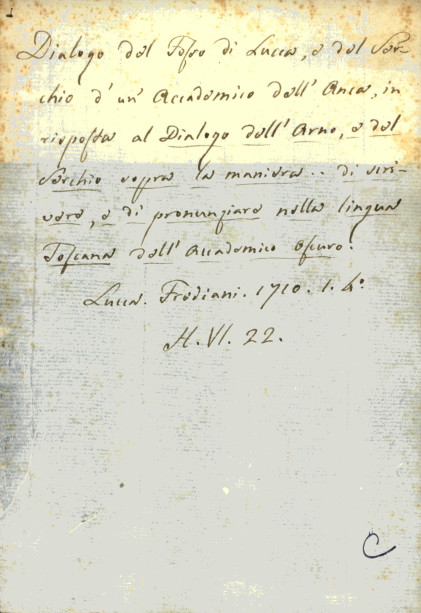 1
Dialogo del Fosso di Lucca, e del Ser-
chio d' un' Accademico dell' Anca, in
risposta al Dialogo dell' Arno, e del
Serchio sopra la maniera .. di scri-
vere, e di pronunziare nella lingua
Toscana dell' Accademico Oscuro.
Lucca. Frediani. 1710. 1. 4°
H. VI. 22.
C